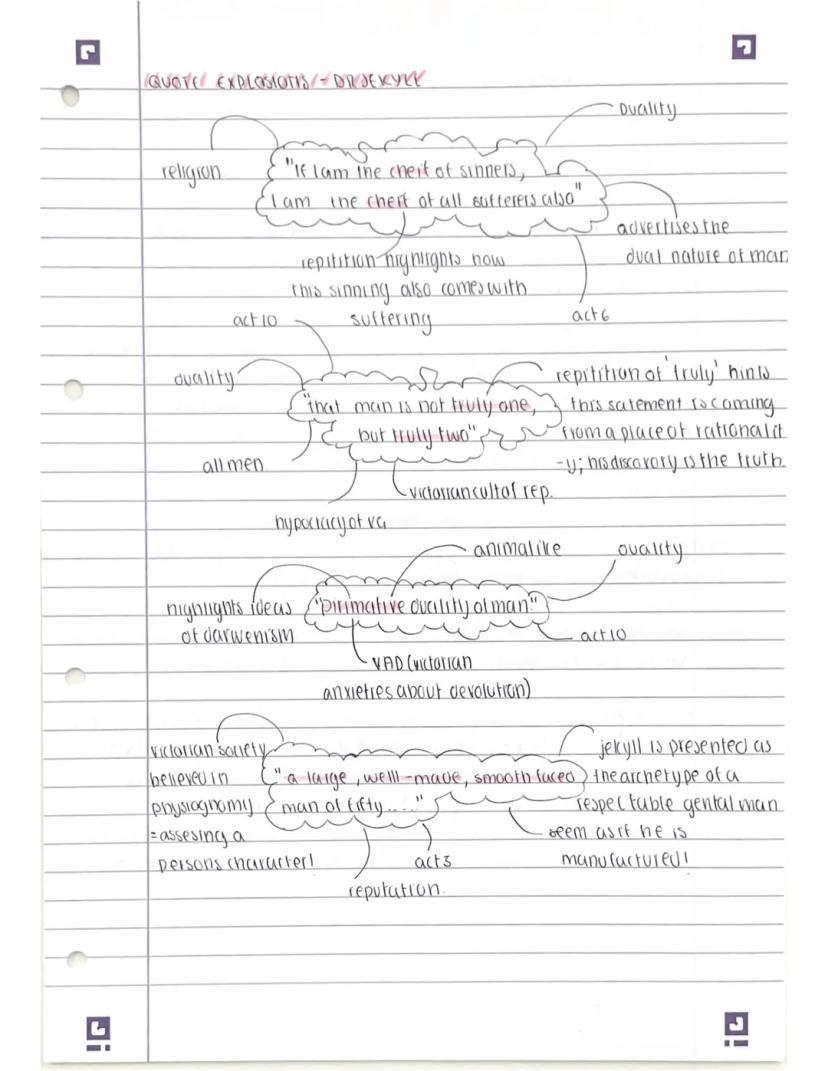 QUOTE EXPLOSIONS - DR JEKYLL
DUALITY
religion
"If I am the cheif of sinners,
I am the cheif of all sufferers also"
advertises the
dual nature of man
repitition highlights how
this sinning also comes with
suffering
act 6
act 10
duality
repitition of 'truly' hints
"that man is not truly one,
this satement is coming
but truly two"
from a place of rationalit
-y; his discovory is the truth.
all men
victorian cult of rep.
hypocricy of VG
animalike
duality
highlights ideas
of darwenism
"pirimative duality of man"
act 10
VAD (victorian
anxieties about devolution)
victorian society
believed in
physiognomy
=assesing a
persons character!
"a large, well-made, smooth faced
man of fifty....."
jekyll is presented as
the archetype of a
respectable gental man
seem as if he is
manufactured!
act 3
reputation.